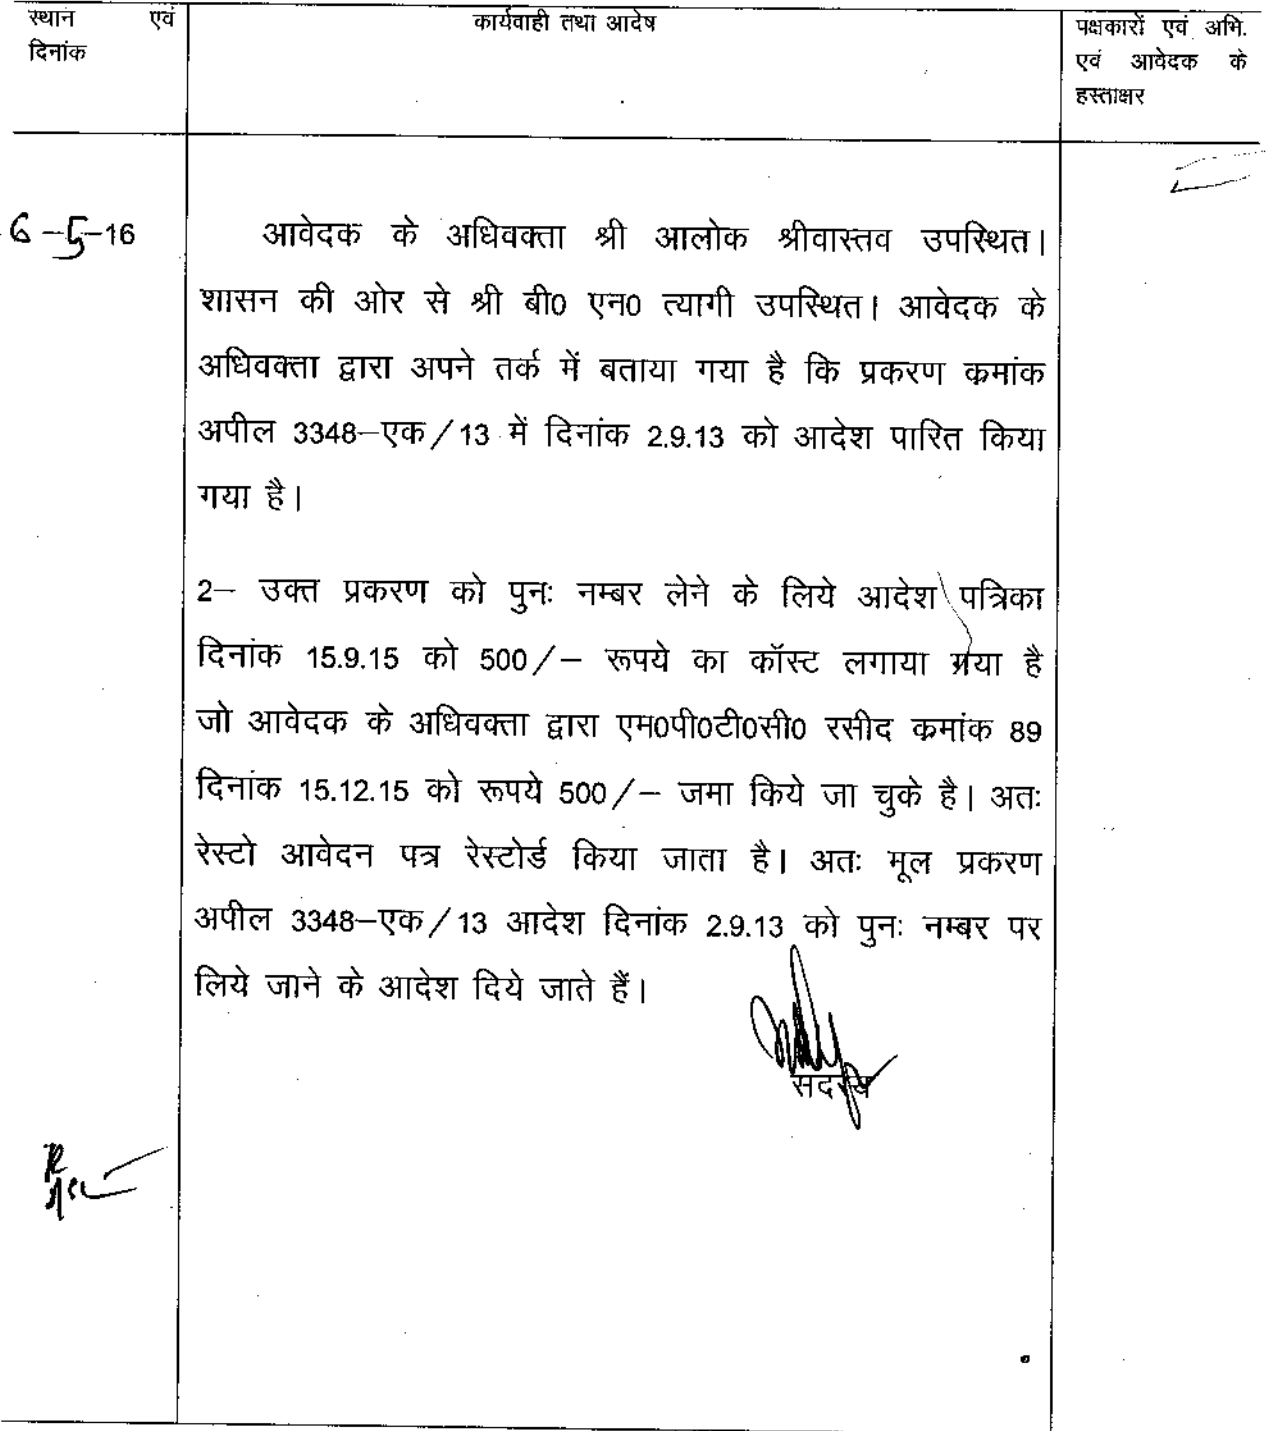 स्थान एवं
दिनांक
कार्यवाही तथा आदेष
पक्षकारों एवं अभि.
एवं आवेदक के
हस्ताक्षर
6-5-16
आवेदक के अधिवक्ता श्री आलोक श्रीवास्तव उपस्थित।
शासन की ओर से श्री बी0 एन0 त्यागी उपस्थित। आवेदक के
अधिवक्ता द्वारा अपने तर्क में बताया गया है कि प्रकरण कमांक
अपील 3348–एक/13 में दिनांक 2.9.13 को आदेश पारित किया
गया है।
2– उक्त प्रकरण को पुनः नम्बर लेने के लिये आदेश पत्रिका
दिनांक 15.9.15 को 500/– रूपये का कॉस्ट लगाया गया है
जो आवेदक के अधिवक्ता द्वारा एम0पी0टी0सी0 रसीद कमांक 89
दिनांक 15.12.15 को रूपये 500/– जमा किये जा चुके है। अतः
रेस्टो आवेदन पत्र रेस्टोर्ड किया जाता है। अतः मूल प्रकरण
अपील 3348–एक/13 आदेश दिनांक 2.9.13 को पुनः नम्बर पर
लिये जाने के आदेश दिये जाते हैं।
सदस्य